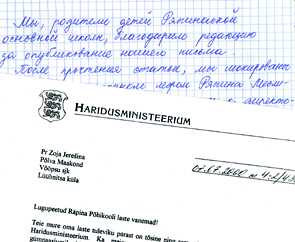 Мы, родители детей Ряпинаской
основной школы, благодарим редакцию
за опубликование нашего письма.
После прочтения статьи, мы шокированы
школе мэром Ряпина
HARIDUSMINISTEERIUM
Pr Zoja Jerešina
Põlva Maakond
Võõpsu sjk
Lüübnitsa küla
07.07.2000 nr
Lugupeetud Räpina Põhikooli laste vanemad!
Teie mure oma laste tuleviku pärast on tõsine ning
Haridusministeerium. Ka